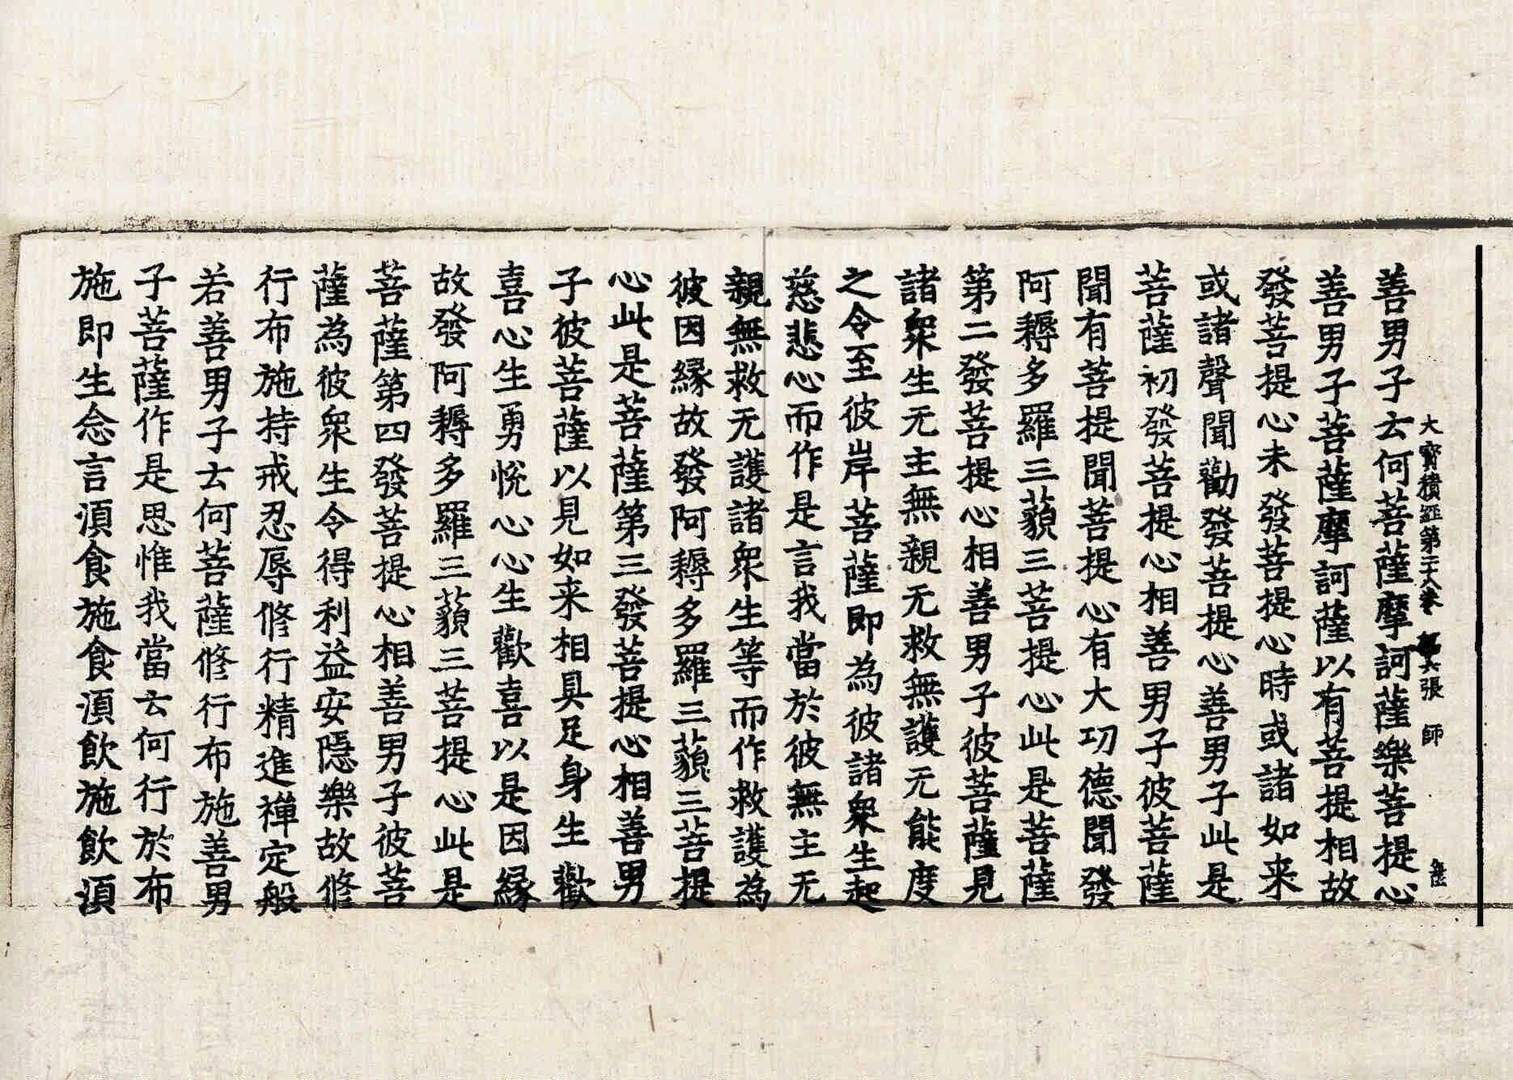 大寶積經第二十八卷 第六張 師
善男子云何菩薩摩訶薩樂菩提心
善男子菩薩摩訶薩以有菩提相故
發菩提心未發菩提心時或諸如来
或諸聲聞勸發菩提心善男子此是
菩薩初發菩提心相善男子彼菩薩
聞有菩提聞菩提心有大功德聞發
阿耨多羅三藐三菩提心此是菩薩
第二發菩提心相善男子彼菩薩見
諸衆生无主無親无救無護无能度
之令至彼岸菩薩即為彼諸衆生起
慈悲心而作是言我當於彼無主无
親無救无護諸衆生等而作救護為
彼因緣故發阿耨多羅三藐三菩提
心此是菩薩第三發菩提心相善男
子彼菩薩以見如来相具足身生歡
喜心生勇恱心心生歡喜以是因緣
故發阿耨多羅三藐三菩提心此是
菩薩第四發菩提心相善男子彼菩
薩為彼衆生令得利益安隱樂故修
行布施持戒忍辱修行精進禅定般
若善男子云何菩薩修行布施善男
子菩薩作是思惟我當云何行於布
施即生念言湏食施食湏飲施飲湏